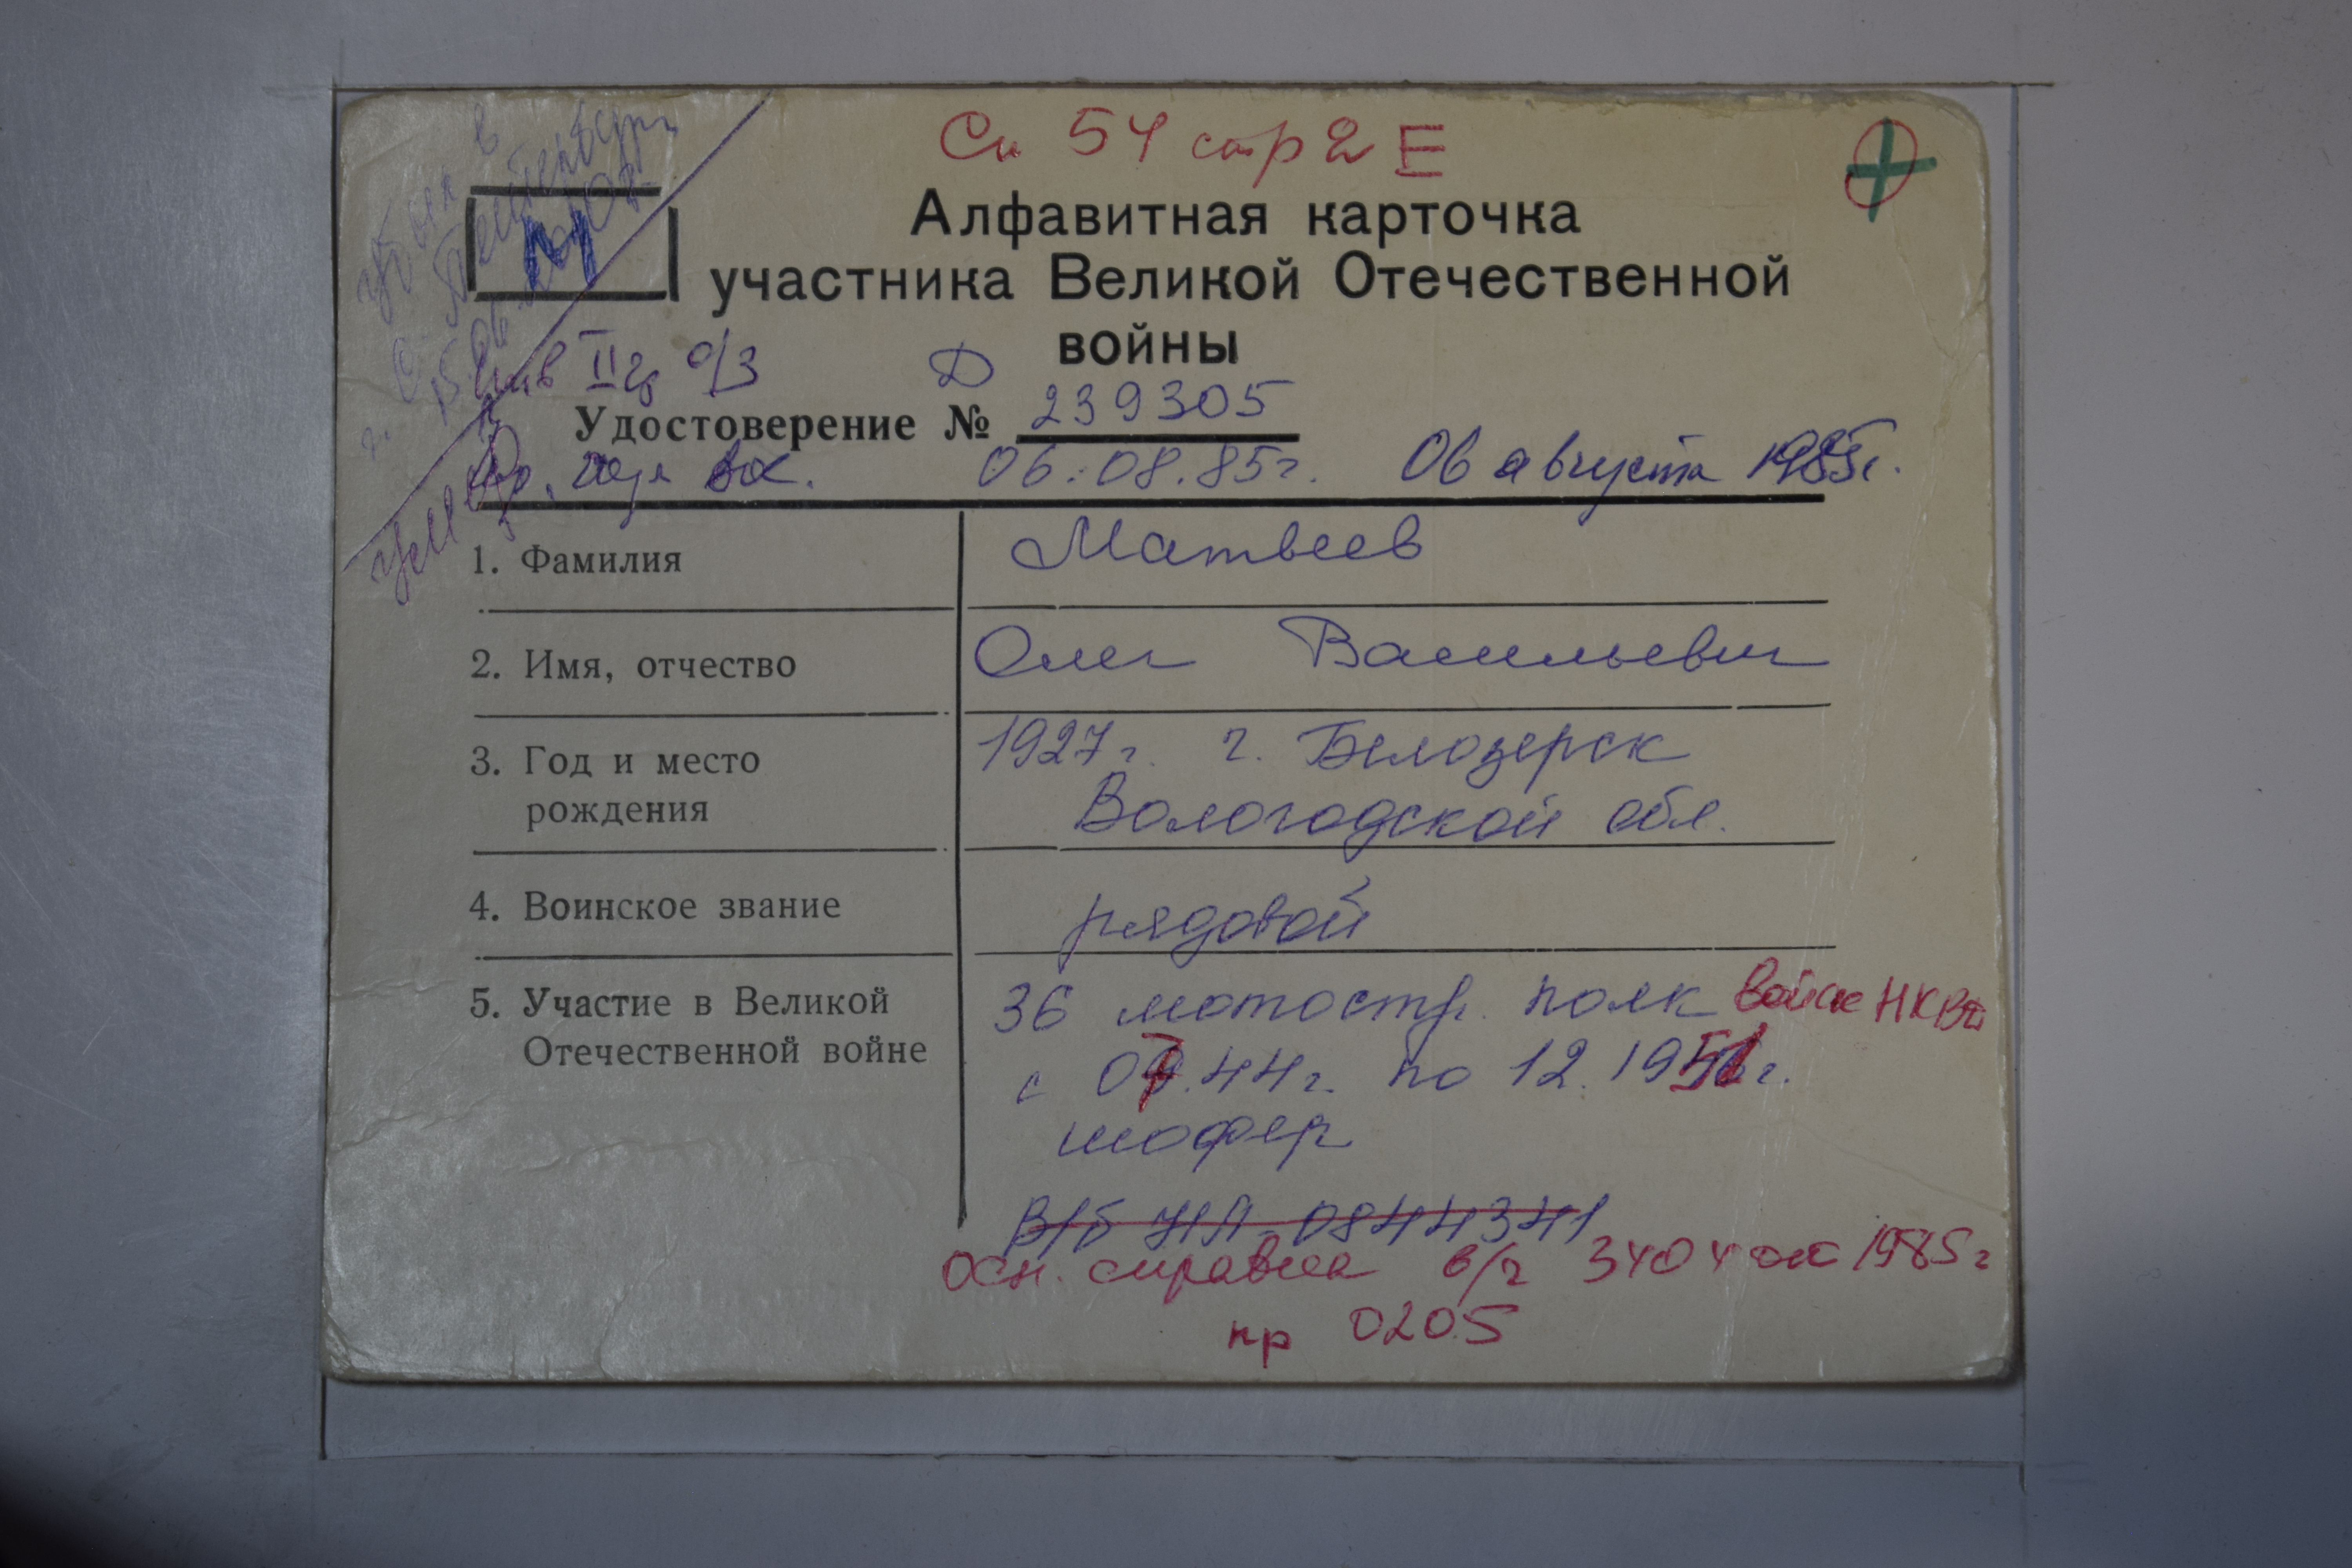 Сп 54 стр 2 Е
Алфавитная карточка
участника Великой Отечественной
войны
М
убыл в
г. С. Петербург
Инв II гр о/з
Д
Удостоверение № 239305
06.08.85г. 06 августа 1985г.
1. Фамилия Матвеев
2. Имя, отчество Олег Васильевич
3. Год и место 1927г. г. Белозерск
рождения Вологодской обл.
4. Воинское звание рядовой
5. Участие в Великой 36 мотостр. полк войск НКВД
Отечественной войне с 07.44г. по 12.1951г.
шофер
В/б НЛ 0844341
Осн. справка в/ч 3404 от 1985г
пр 0205